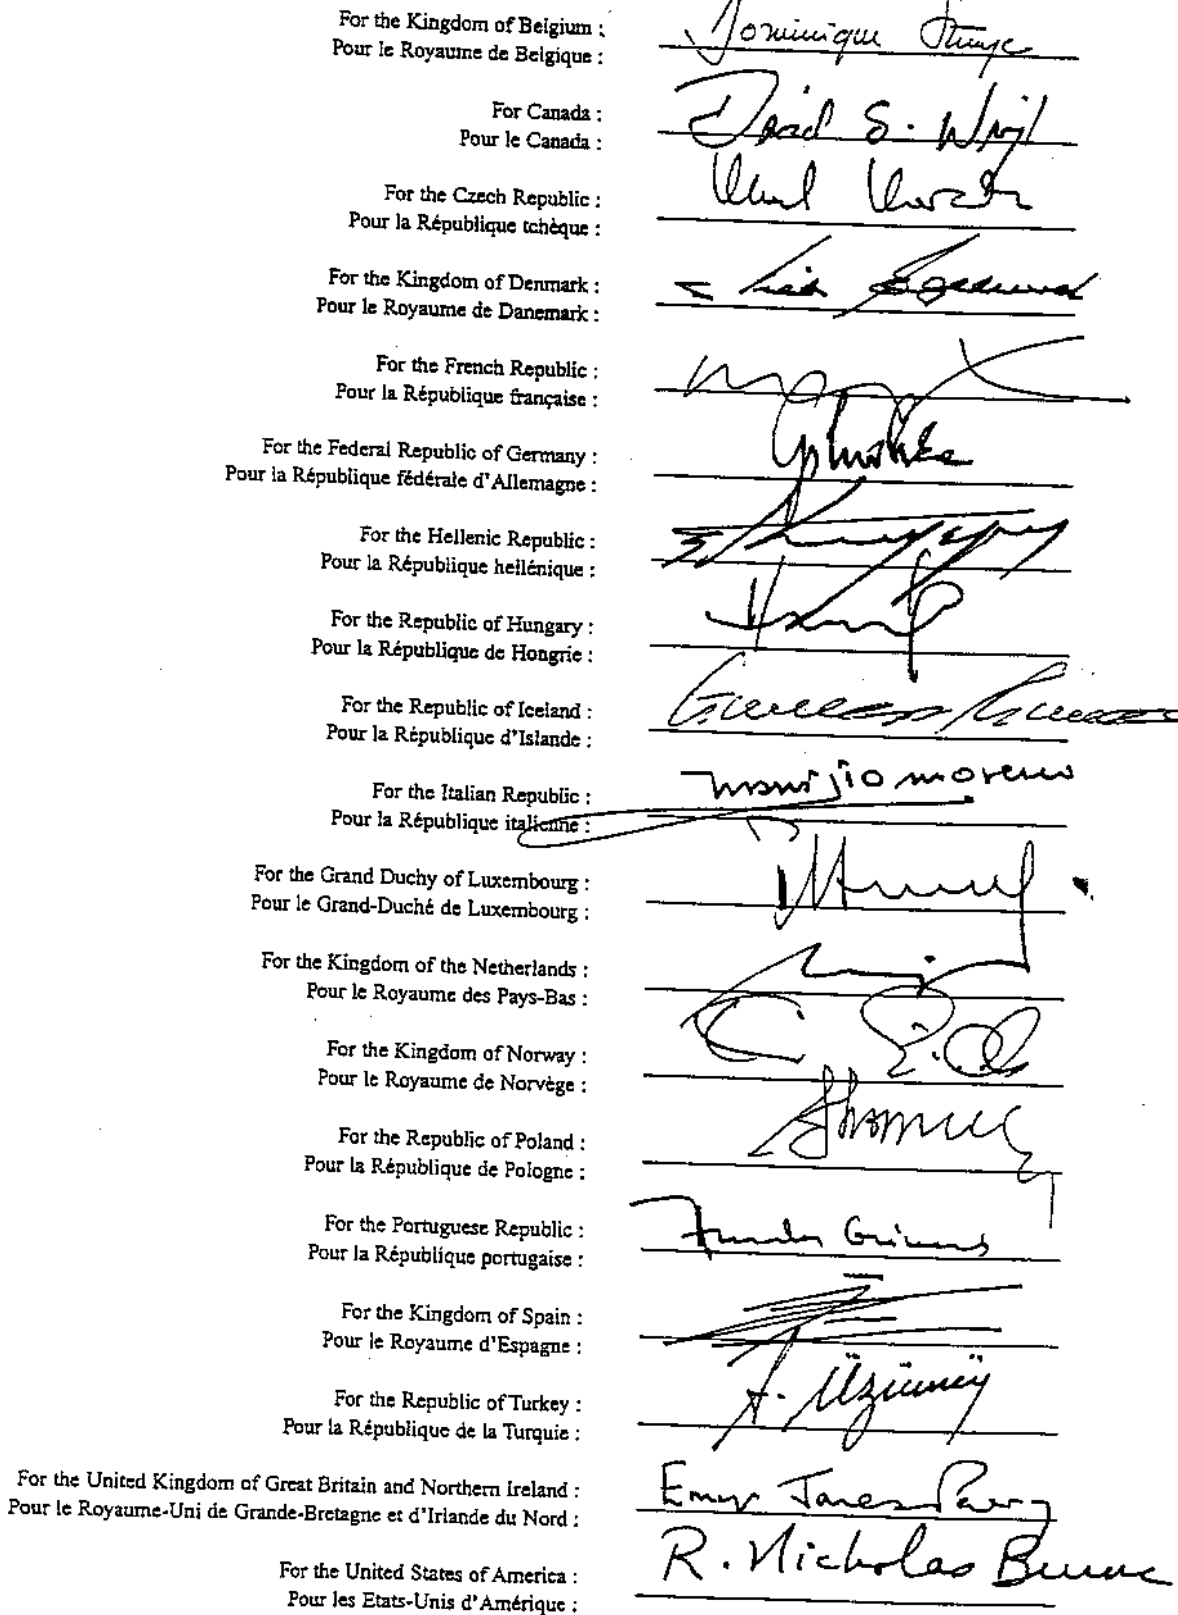 For the Kingdom of Belgium :
Pour le Royaume de Belgique :
Dominique Struye
For Canada :
Pour le Canada :
David S. Wright
For the Czech Republic :
Pour la République tchèque :
For the Kingdom of Denmark :
Pour le Royaume de Danemark :
For the French Republic :
Pour la République française :
For the Federal Republic of Germany :
Pour la République fédérale d'Allemagne :
For the Hellenic Republic :
Pour la République hellénique :
For the Republic of Hungary :
Pour la République de Hongrie :
For the Republic of Iceland :
Pour la République d'Islande :
For the Italian Republic :
Pour la République italienne :
maurizio moreno
For the Grand Duchy of Luxembourg :
Pour le Grand-Duché de Luxembourg :
For the Kingdom of the Netherlands :
Pour le Royaume des Pays-Bas :
For the Kingdom of Norway :
Pour le Royaume de Norvège :
For the Republic of Poland :
Pour la République de Pologne :
For the Portuguese Republic :
Pour la République portugaise :
For the Kingdom of Spain :
Pour le Royaume d'Espagne :
For the Republic of Turkey :
Pour la République de la Turquie :
For the United Kingdom of Great Britain and Northern Ireland :
Pour le Royaume-Uni de Grande-Bretagne et d'Irlande du Nord :
Emyr Jones Parry
For the United States of America :
Pour les Etats-Unis d'Amérique :
R. Nicholas Burns